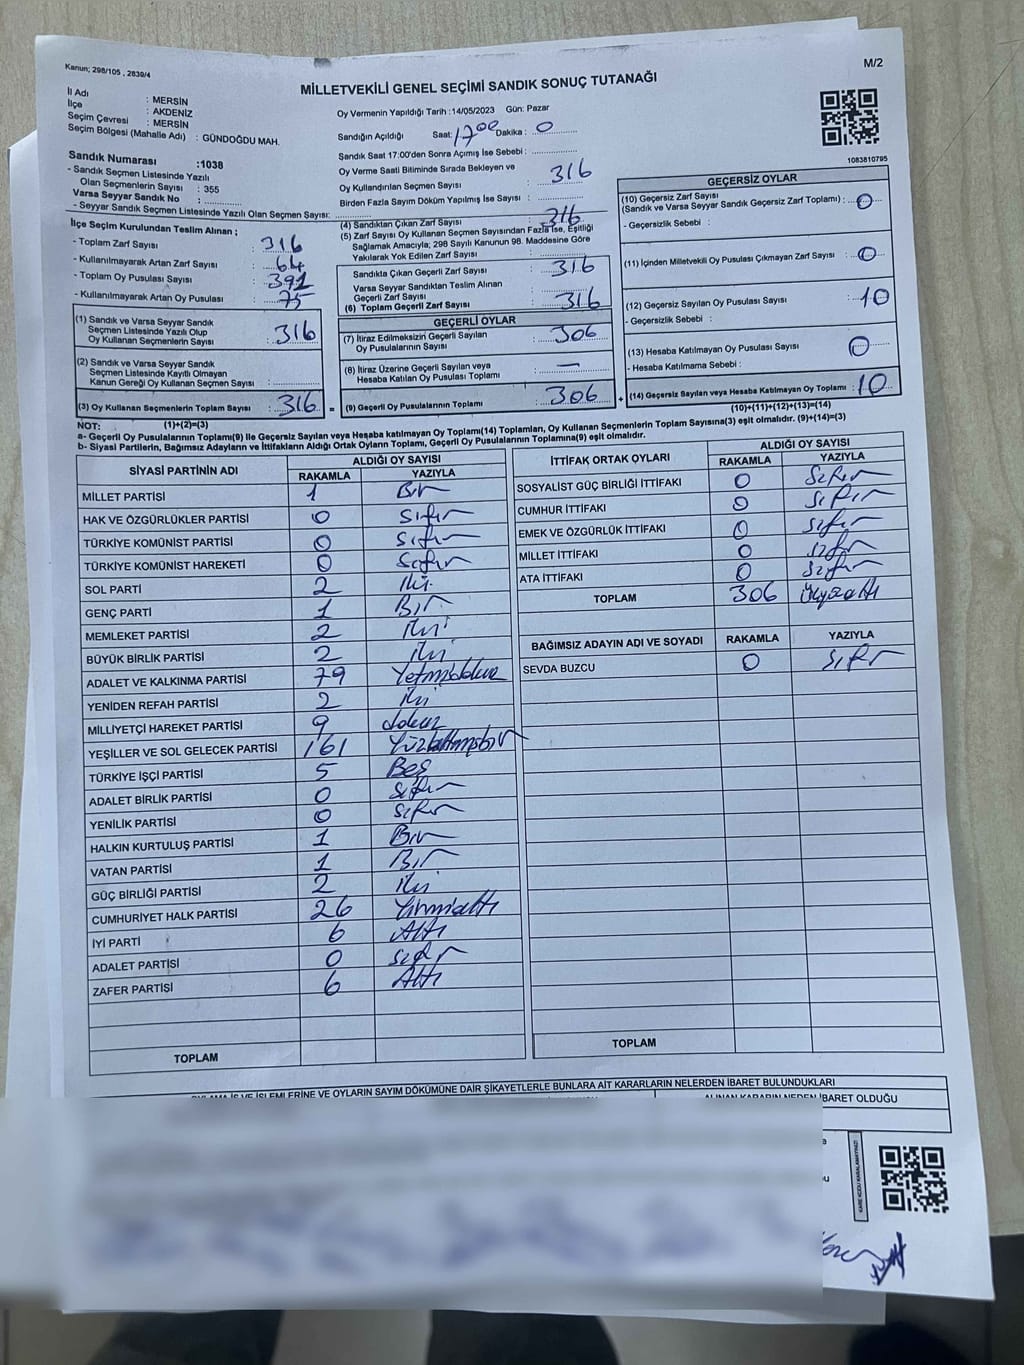 Kanun; 298/105 , 2839/4
M/2
MİLLETVEKİLİ GENEL SEÇİMİ SANDIK SONUÇ TUTANAĞI
İl Adı : MERSİN
İlçe : AKDENİZ
Seçim Çevresi : MERSİN
Seçim Bölgesi (Mahalle Adı) : GÜNDOĞDU MAH.
Sandık Numarası :1038
- Sandık Seçmen Listesinde Yazılı
Olan Seçmenlerin Sayısı : 355
Varsa Seyyar Sandık No :
- Seyyar Sandık Seçmen Listesinde Yazılı Olan Seçmen Sayısı:
Oy Vermenin Yapıldığı Tarih :14/05/2023 Gün: Pazar
Sandığın Açıldığı Saat: 17 00 Dakika : 0
Sandık Saat 17:00'den Sonra Açımış İse Sebebi :
Oy Verme Saati Bitiminde Sırada Bekleyen ve
Oy Kullandırılan Seçmen Sayısı : 316
Birden Fazla Sayım Döküm Yapılmış İse Sayısı :
1083810795
İlçe Seçim Kurulundan Teslim Alınan ;
- Toplam Zarf Sayısı : 316
- Kullanılmayarak Artan Zarf Sayısı : 64
- Toplam Oy Pusulası Sayısı : 391
- Kullanılmayarak Artan Oy Pusulası : 75
(1) Sandık ve Varsa Seyyar Sandık
Seçmen Listesinde Yazılı Olup
Oy Kullanan Seçmenlerin Sayısı : 316
(2) Sandık ve Varsa Seyyar Sandık
Seçmen Listesinde Kayıtlı Olmayan
Kanun Gereği Oy Kullanan Seçmen Sayısı :
(3) Oy Kullanan Seçmenlerin Toplam Sayısı : 316
(4) Sandıktan Çıkan Zarf Sayısı : 316
(5) Zarf Sayısı Oy Kullanan Seçmen Sayısından Fazla İse, Eşitliği
Sağlamak Amacıyla; 298 Sayılı Kanunun 98. Maddesine Göre
Yakılarak Yok Edilen Zarf Sayısı :
Sandıkta Çıkan Geçerli Zarf Sayısı : 316
Varsa Seyyar Sandıktan Teslim Alınan
Geçerli Zarf Sayısı :
(6) Toplam Geçerli Zarf Sayısı : 316
GEÇERLİ OYLAR
(7) İtiraz Edilmeksizin Geçerli Sayılan
Oy Pusulalarının Sayısı : 306
(8) İtiraz Üzerine Geçerli Sayılan veya
Hesaba Katılan Oy Pusulası Toplamı : —
= (9) Geçerli Oy Pusulalarının Toplamı : 306
GEÇERSİZ OYLAR
(10) Geçersiz Zarf Sayısı
(Sandık ve Varsa Seyyar Sandık Geçersiz Zarf Toplamı) : 0
- Geçersizlik Sebebi :
(11) İçinden Milletvekili Oy Pusulası Çıkmayan Zarf Sayısı : 0
(12) Geçersiz Sayılan Oy Pusulası Sayısı : 10
- Geçersizlik Sebebi :
(13) Hesaba Katılmayan Oy Pusulası Sayısı : 0
- Hesaba Katılmama Sebebi :
+ (14) Geçersiz Sayılan veya Hesaba Katılmayan Oy Toplamı : 10
NOT: (1)+(2)=(3)
(10)+(11)+(12)+(13)=(14)
a- Geçerli Oy Pusulalarının Toplamı(9) ile Geçersiz Sayılan veya Hesaba katılmayan Oy Toplamı(14) Toplamları, Oy Kullanan Seçmenlerin Toplam Sayısına(3) eşit olmalıdır. (9)+(14)=(3)
b- Siyasi Partilerin, Bağımsız Adayların ve İttifakların Aldığı Ortak Oyların Toplamı, Geçerli Oy Pusulalarının Toplamına(9) eşit olmalıdır.
SİYASİ PARTİNİN ADI ALDIĞI OY SAYISI
RAKAMLA YAZIYLA
MİLLET PARTİSİ 1 Bir
HAK VE ÖZGÜRLÜKLER PARTİSİ 0 Sıfır
TÜRKİYE KOMÜNİST PARTİSİ 0 Sıfır
TÜRKİYE KOMÜNİST HAREKETİ 0 Sıfır
SOL PARTİ 2 iki
GENÇ PARTİ 1 Bir
MEMLEKET PARTİSİ 2 iki
BÜYÜK BİRLİK PARTİSİ 2 iki
ADALET VE KALKINMA PARTİSİ 79 Yetmişdokuz
YENİDEN REFAH PARTİSİ 2 iki
MİLLİYETÇİ HAREKET PARTİSİ 9 dokuz
YEŞİLLER VE SOL GELECEK PARTİSİ 161 Yüzaltmışbir
TÜRKİYE İŞÇİ PARTİSİ 5 Beş
ADALET BİRLİK PARTİSİ 0 Sıfır
YENİLİK PARTİSİ 0 Sıfır
HALKIN KURTULUŞ PARTİSİ 1 Bir
VATAN PARTİSİ 1 Bir
GÜÇ BİRLİĞİ PARTİSİ 2 iki
CUMHURİYET HALK PARTİSİ 26 Yirmialtı
İYİ PARTİ 6 Altı
ADALET PARTİSİ 0 Sıfır
ZAFER PARTİSİ 6 Altı
TOPLAM
İTTİFAK ORTAK OYLARI ALDIĞI OY SAYISI
RAKAMLA YAZIYLA
SOSYALİST GÜÇ BİRLİĞİ İTTİFAKI 0 Sıfır
CUMHUR İTTİFAKI 0 Sıfır
EMEK VE ÖZGÜRLÜK İTTİFAKI 0 Sıfır
MİLLET İTTİFAKI 0 Sıfır
ATA İTTİFAKI 0 Sıfır
TOPLAM 306 Üçyüzaltı
BAĞIMSIZ ADAYIN ADI VE SOYADI RAKAMLA YAZIYLA
SEVDA BUZCU 0 Sıfır
TOPLAM
İŞLEMLERİNE VE OYLARIN SAYIM DÖKÜMÜNE DAİR ŞİKAYETLERLE BUNLARA AİT KARARLARIN NELERDEN İBARET BULUNDUKLARI
ALINAN KARARIN NEDEN İBARET OLDUĞU
KARE KODU KARALAMAYINIZ!